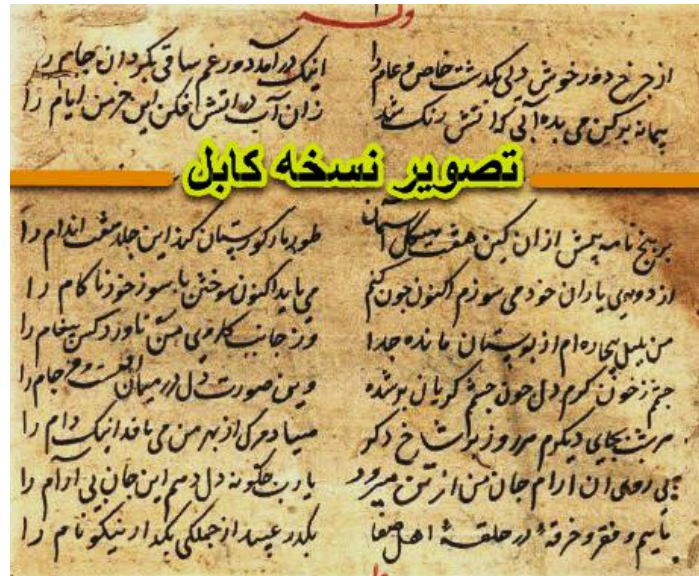 وله
از چرخ دور خوش دلی بگذشت خاص و عام را اینک درآمد دور غم ساقی بگردان جام را
پیمانه پر کن می بده آبی کز آتش رنگ شد زان آب در آتش فکن این خرمن ایام را
تصویر نسخه کابل
بر پیچ نامه پیش از آن کین هفت هیکل آسمان طومار کن این اندام را
از دوری یاران خود می سوزم اکنون چون کنم می باید اکنون سوختن با سوز خود ناکام را
من بلبل بیچاره ام از بوستان مانده جدا وز جانب کس ناورد پیغام را
چشم ز خون گرم دل چون چشم گریان وین صورت دل در میان جام را
هر شب بجای دیگرم هر روز بر شاخ دگر صیاد مرگ از بهر من می بافد اینک دام را
بی روی آن آرام جان من از تن میرود یا رب چگونه دل دهم این جان بی آرام را
ماییم و فقر و خرقه در حلقه اهل صفا بگذر عبید از جملگی بگذار نیکو نام را